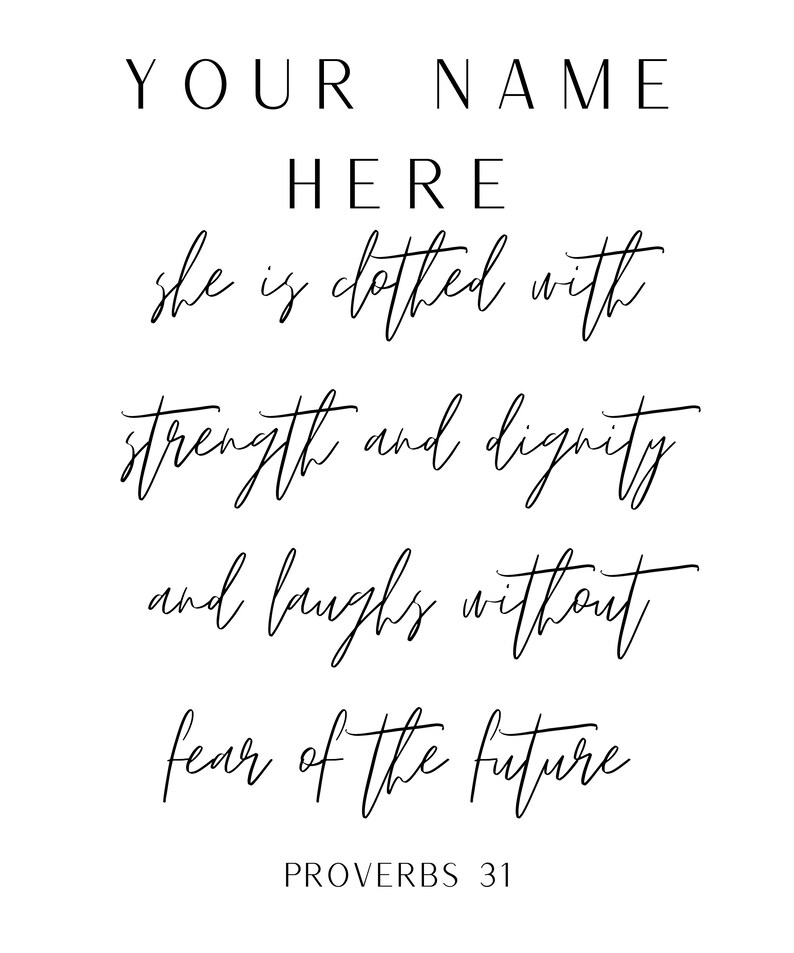 YOUR NAME
HERE
she is clothed with
strength and dignity
and laughs without
fear of the future
PROVERBS 31